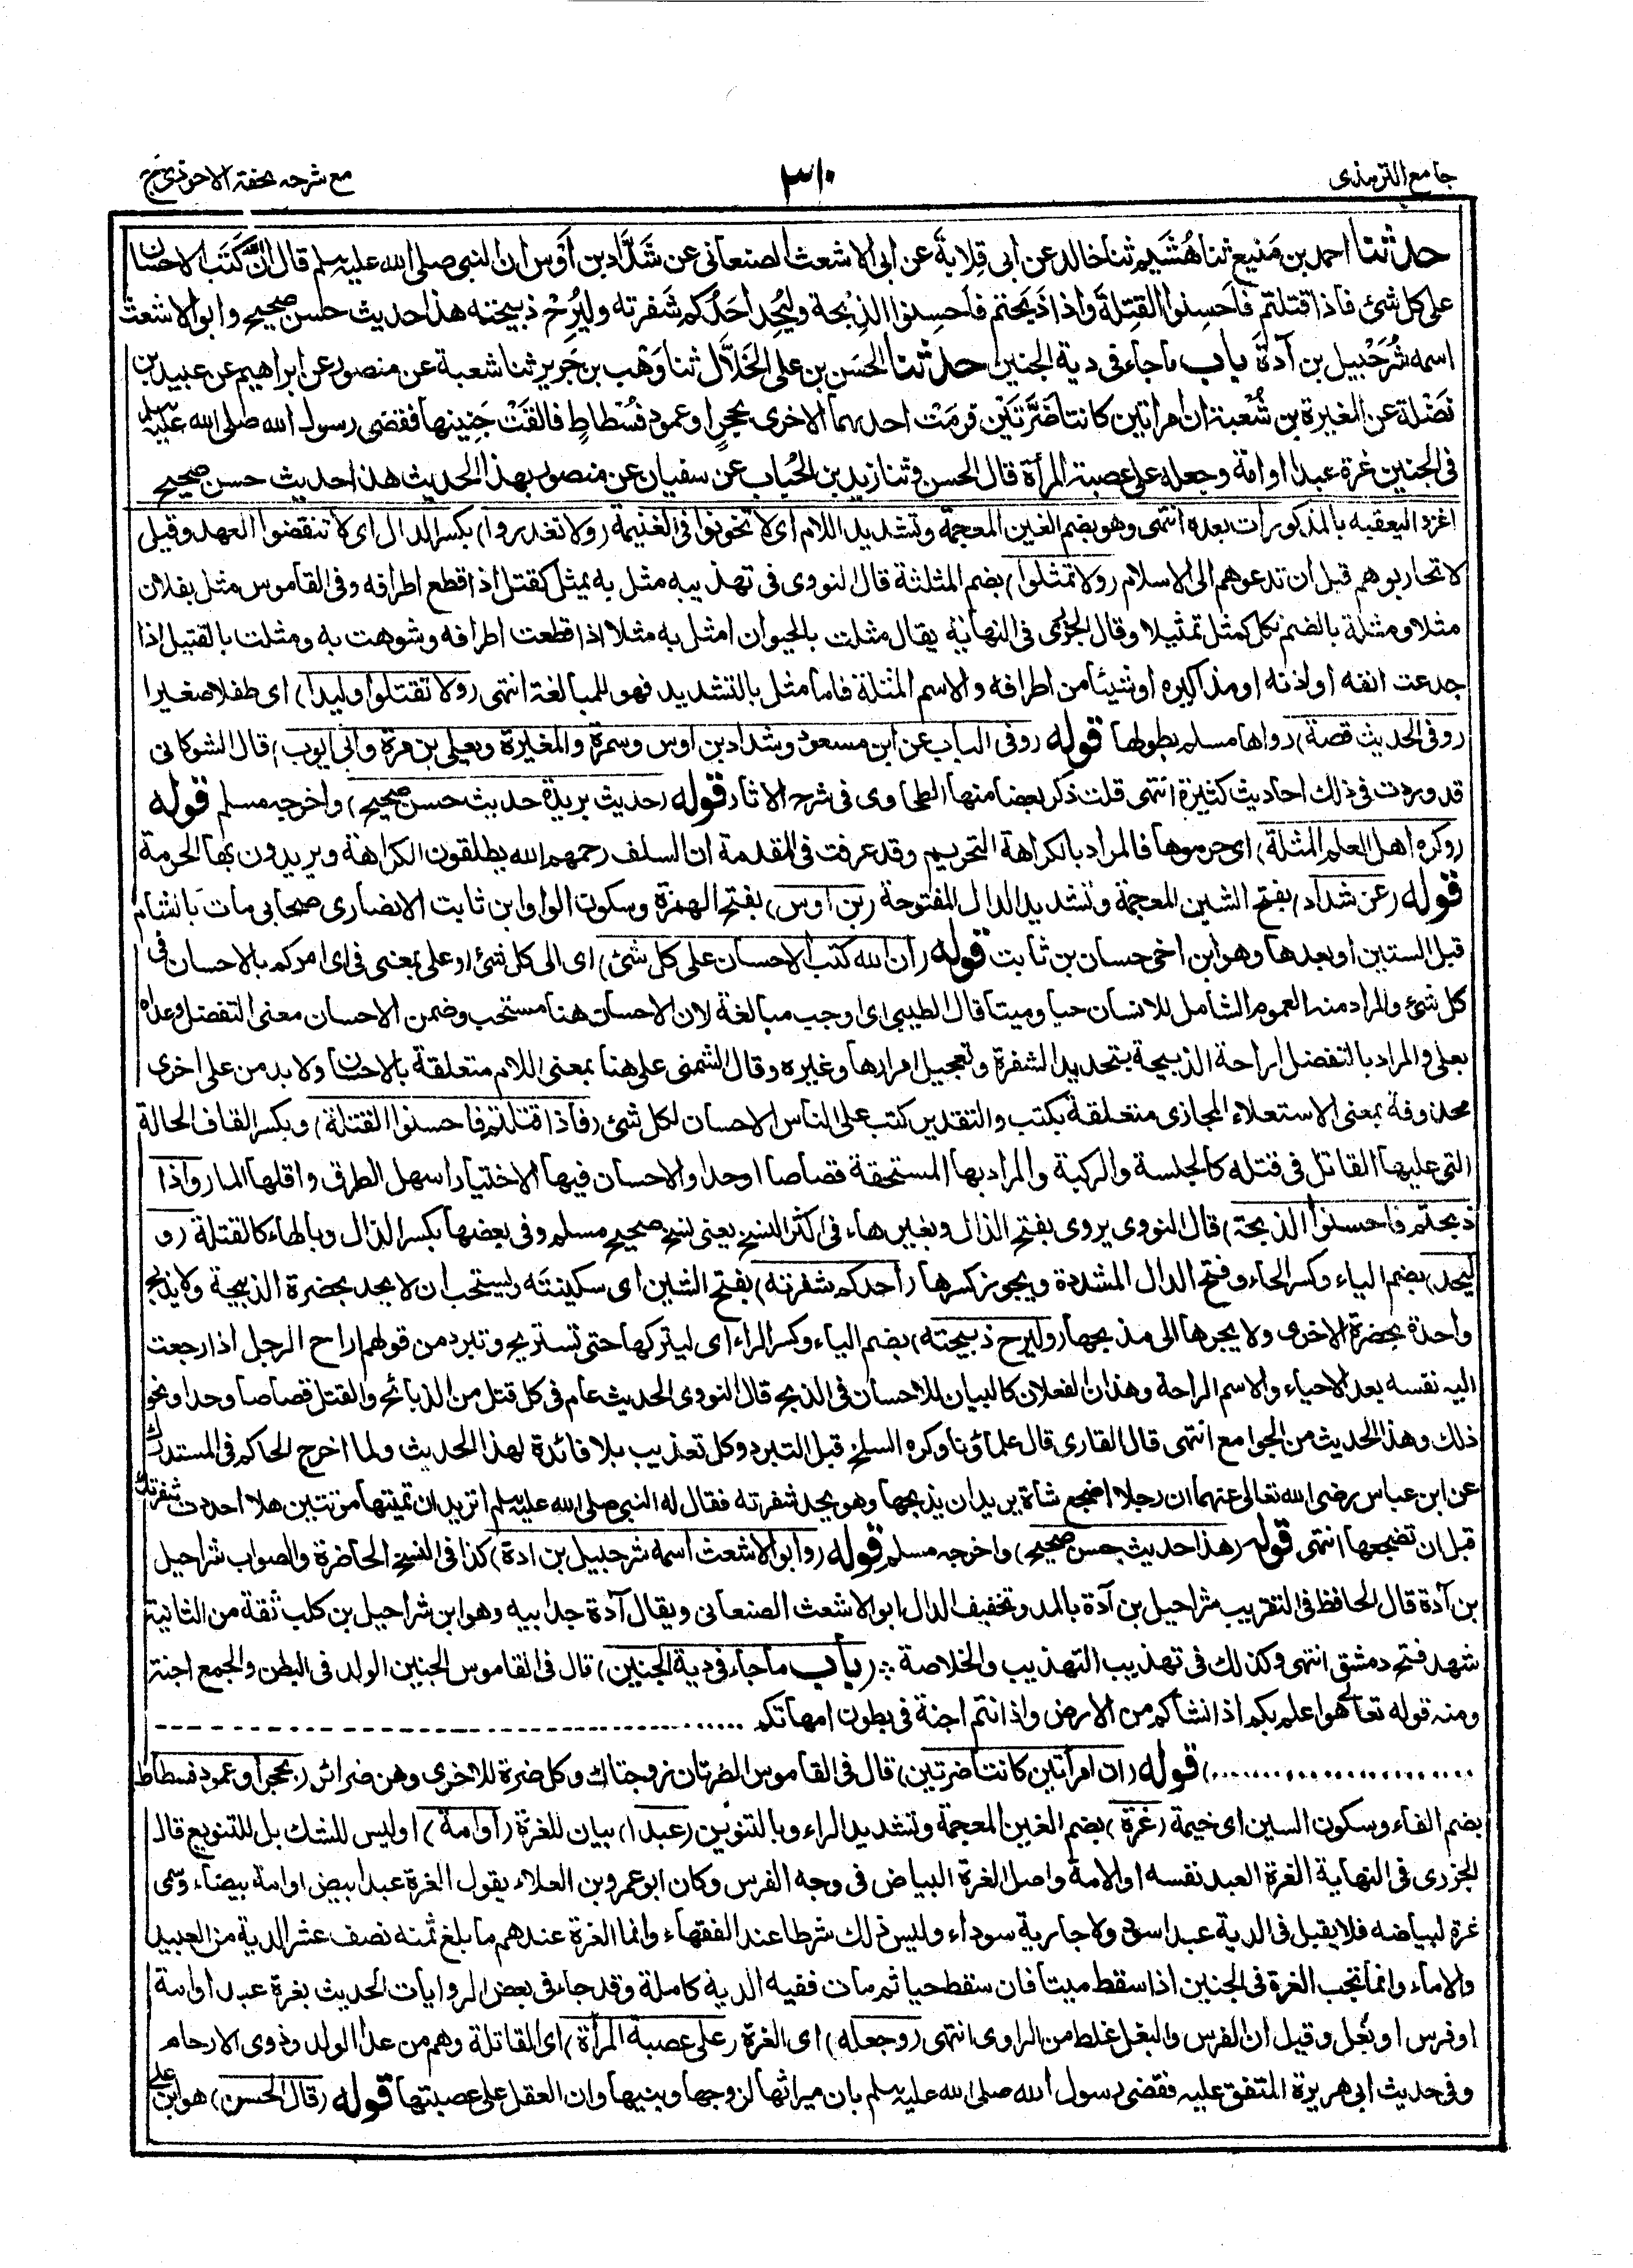 جامع الترمذى
٣١٠
مع شرحه تحفة الاحوذى ج
حدثنا احمد بن مَنيع ثنا هُشَيم ثنا خالد عن أبى قِلابةَ عن ابى الاشعث الصنعانى عن شَدَّاد بن أَوس ان النبى صلى الله عليه وسلم قال ان الله كَتَبَ الاحسان
على كل شئ فاذا قتلتم فاَحسِنوا القِتلةَ واذا ذَبحتم فاَحسِنوا الذِبْحة وليُحِد احَدُكم شَفرته وليُرِحْ ذبيحته هذا حديث حسن صحيح وابو الاشعث
اسمه شُرَحْبيل بن آدةَ باب ماجاء فى دية الجنين حدثنا الحسَن بن على الخَلاَّل ثنا وَهْب بن جَرير ثنا شعبة عن منصور عن ابراهيم عن عبيد بن
نَضْلة عن المغيرة بن شُعْبة ان امراتين كانتا ضَرَّتَيْن فرمَت احدٰهما الاخرى بحجرٍ او عمود فُسْطاطٍ فالقَتْ جَنينها فقضى رسول الله صلى الله عليه وسلم
فى الجنين غرة عبدا او امة وجعله على عصبة المرأة قال الحسن وثنا زيد بن الحُباب عن سفيان عن منصور بهذا الحديث هذا حديث حسن صحيح
اغزوا ليعقبه بالمذكورات بعده انتهى وهو بضم الغين المعجمة وتشديد اللام اى لا تخونوا فى الغنيمة (ولا تغدروا) بكسر الدال اى لا تنقضوا العهد وقيل
لا تحاربوهم قبل ان تدعوهم الى الاسلام (ولا تمثلوا) بضم المثلثة قال النووى فى تهذيبه مثل به يمثل كقتل اذا قطع اطرافه وفى القاموس مثل بفلان
مثلا ومثلة بالضم نكل كمثل تمثيلا وقال الجزرى فى النهاية يقال مثلت بالحيوان امثل به مثلا اذا قطعت اطرافه وشوهت به ومثلت بالقتيل اذا
جدعت انفه او اذنه او مذاكيره او شيئا من اطرافه والاسم المثلة فاما مثل بالتشديد فهو للمبالغة انتهى (ولا تقتلوا وليدا) اى طفلا صغيرا
(وفى الحديث قصة) رواها مسلم بطولها قوله (وفى الباب عن ابن مسعود وشداد بن اوس وسمرة والمغيرة ويعلى بن مرة وابى ايوب) قال الشوكانى
قد وردت فى ذلك احاديث كثيرة انتهى قلت ذكر بعضا منها الطحاوى فى شرح الاثار قوله (حديث بريدة حديث حسن صحيح) واخرجه مسلم قوله
(وكره اهل العلم المثلة) اى حرموها فالمراد بالكراهة التحريم وقد عرفت فى المقدمة ان السلف رحمهم الله يطلقون الكراهة ويريدون بها الحرمة
قوله (عن شداد) بفتح الشين المعجمة وتشديد الدال المفتوحة (بن اوس) بفتح الهمزة وسكون الواو ابن ثابت الانصارى صحابى مات بالشام
قبل الستين او بعدها وهو ابن اخى حسان بن ثابت قوله (ان الله كتب الاحسان على كل شئ) اى الى كل شئ او على بمعنى فى اى امركم بالاحسان فى
كل شئ والمراد منه العموم الشامل للانسان حيا وميتا قال الطيبى اى اوجب مبالغة لان الاحسان هنا مستحب وضمن الاحسان معنى التفضل وعداه
بعلى والمراد بالتفضل اراحة الذبيحة بتحديد الشفرة وتعجيل امرارها وغيره وقال الشمنى على هنا بمعنى اللام متعلقة بالاحسان ولا بد من على اخرى
محذوفة بمعنى الاستعلاء المجازى متعلقة بكتب والتقدير كتب على الناس الاحسان لكل شئ (فاذا قتلتم فاحسنوا القتلة) وبكسر القاف الحالة
التى عليها القاتل فى قتله كالجلسة والركبة والمراد بها المستحقة قصاصا او حدا والاحسان فيها الاختيار اسهل الطرق واقلها الما (واذا
ذبحتم فاحسنوا الذبحة) قال النووى يروى بفتح الذال وبغير هاء فى اكثر النسخ يعنى نسخ صحيح مسلم وفى بعضها بكسر الذال وبالهاء كالقتلة (و
ليحد) بضم الياء وكسر الحاء وفتح الدال المشددة ويجوز كسرها (احدكم شفرته) بفتح الشين اى سكينته ويستحب ان لا يحد بحضرة الذبيحة ولا يذبح
واحدة بحضرة الاخرى ولا يجرها الى مذبحها (وليرح ذبيحته) بضم الياء وكسر الراء اى ليتركها حتى تستريح وتبرد من قولهم اراح الرجل اذا رجعت
اليه نفسه بعد الاحياء والاسم الراحة وهذان الفعلان كالبيان للاحسان فى الذبح قال النووى الحديث عام فى كل قتل من الذبائح والقتل قصاصا وحدا ونحو
ذلك وهذا الحديث من الجوامع انتهى قال القارى قال علماؤنا وكره السلخ قبل التبرد وكل تعذيب بلا فائدة لهذا الحديث ولما اخرج الحاكم فى المستدرك
عن ابن عباس رضى الله تعالى عنهما ان رجلا اضجع شاة يريد ان يذبحها وهو يحد شفرته فقال له النبى صلى الله عليه وسلم اتريد ان تميتها موتتين هلا احددت شفرتك
قبل ان تضجعها انتهى قوله (هذا حديث حسن صحيح) واخرجه مسلم قوله (وابو الاشعث اسمه شرحبيل بن ادة) كذا فى النسخ الحاضرة والصواب شراحيل
بن آدة قال الحافظ فى التقريب شراحيل بن آدة بالمد وتخفيف الدال ابو الاشعث الصنعانى ويقال آدة جد ابيه وهو ابن شراحيل بن كلب ثقة من الثانية
شهد فتح دمشق انتهى وكذلك فى تهذيب التهذيب والخلاصة ؞ (باب ماجاء فى دية الجنين) قال فى القاموس الجنين الولد فى البطن والجمع اجنة
ومنه قوله تعالى هو اعلم بكم اذ انشاكم من الارض واذ انتم اجنة فى بطون امهاتكم ........................
........................) قوله (ان امرأتين كانتا ضرتين) قال فى القاموس الضرتان زوجتاك وكل ضرة للاخرى وهن ضرائر (بحجر او عمود فسطاط
بضم الفاء وسكون السين اى خيمة (غرة) بضم الغين المعجمة وتشديد الراء وبالتنوين (عبدا) بيان للغرة (او امة) او ليس للشك بل للتنويع قال
الجزرى فى النهاية الغرة العبد نفسه او الامة واصل الغرة البياض فى وجه الفرس وكان ابو عمرو بن العلاء يقول الغرة عبد ابيض او امة بيضاء وسمى
غرة لبياضه فلا يقبل فى الدية عبد اسود ولا جارية سوداء وليس ذلك شرطا عند الفقهاء وانما الغرة عندهم ما بلغ ثمنه نصف عشر الدية من العبيد
والاماء وانما تجب الغرة فى الجنين اذا سقط ميتا فان سقط حيا ثم مات ففيه الدية كاملة وقد جاء فى بعض الروايات الحديث بغرة عبد او امة
او فرس او بغل وقيل ان الفرس والبغل غلط من الراوى انتهى (وجعله) اى الغرة (على عصبة المرأة) اى القاتلة وهم من عدا الولد وذوى الارحام
وفى حديث ابى هريرة المتفق عليه فقضى رسول الله صلى الله عليه وسلم بان ميراثها لزوجها وبنيها وان العقل على عصبتها قوله (قال الحسن) هو ابن على